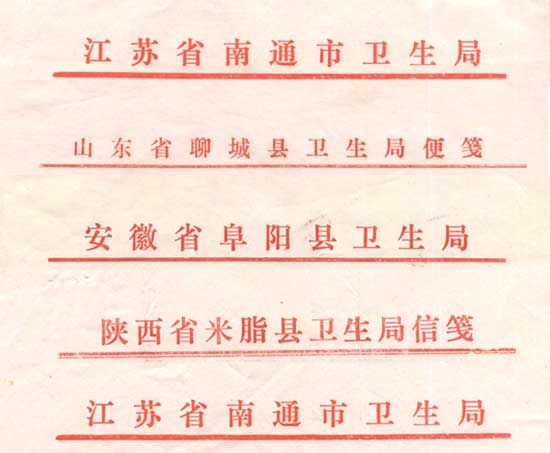 江苏省南通市卫生局
山东省聊城县卫生局便笺
安徽省阜阳县卫生局
陕西省米脂县卫生局信笺
江苏省南通市卫生局